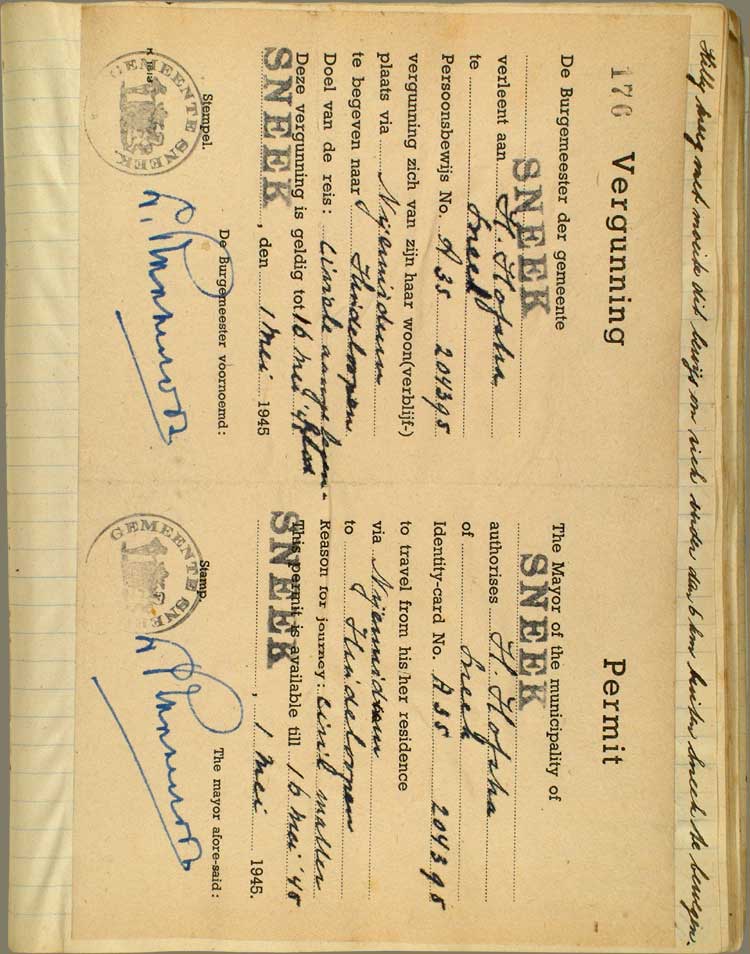 Kelly kreeg met moeite dit bewijs om zich verder dan 6 km buiten Sneek te bewegen.
176 Vergunning
De Burgemeester der gemeente
SNEEK
verleent aan H. Hofstra
te Sneek
Persoonsbewijs No. A 35 204395
vergunning zich van zijn haar woon(verblijf-)
plaats via Nijemirdum
te begeven naar Hindeloopen
Doel van de reis: Civiele aangelegen-
Deze vergunning is geldig tot 16 mei '45
SNEEK, den 1 Mei 1945
De Burgemeester voornoemd:
Stempel.
GEMEENTE SNEEK
Permit
The Mayor of the municipality of
SNEEK
authorises H. Hofstra
of Sneek
Identity-card No. A 35 204395
to travel from his/her residence
via Nijemirdum
to Hindeloopen
Reason for journey: civil matter
This permit is available till 16 Mei '45
SNEEK, 1 Mei 1945.
The mayor afore-said:
Stamp.
GEMEENTE SNEEK